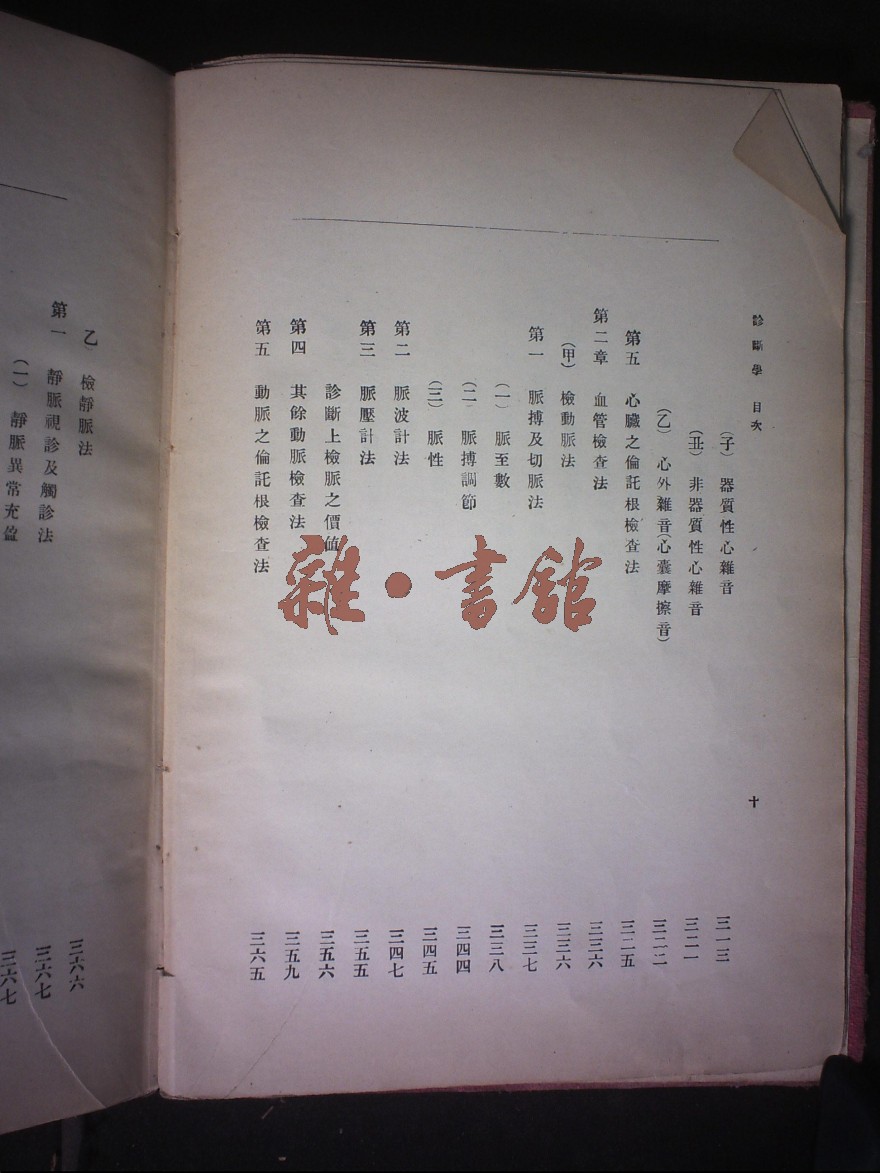 診斷學 目次 十
(子) 器質性心雜音 三一三
(丑) 非器質性心雜音 三二一
(乙) 心外雜音(心囊摩擦音) 三二二
第五 心臟之倫託根檢查法 三二五
第二章 血管檢查法 三三六
(甲) 檢動脈法 三三六
第一 脈搏及切脈法 三三七
(一) 脈至數 三三八
(二) 脈搏調節 三四四
(三) 脈性 三四五
第二 脈波計法 三四七
第三 脈壓計法 三五五
診斷上檢脈之價值 三五六
第四 其餘動脈檢查法 三五九
第五 動脈之倫託根檢查法 三六五
乙) 檢靜脈法 三六六
第一 靜脈視診及觸診法 三六七
(一) 靜脈異常充盈 三六七
雜·書館